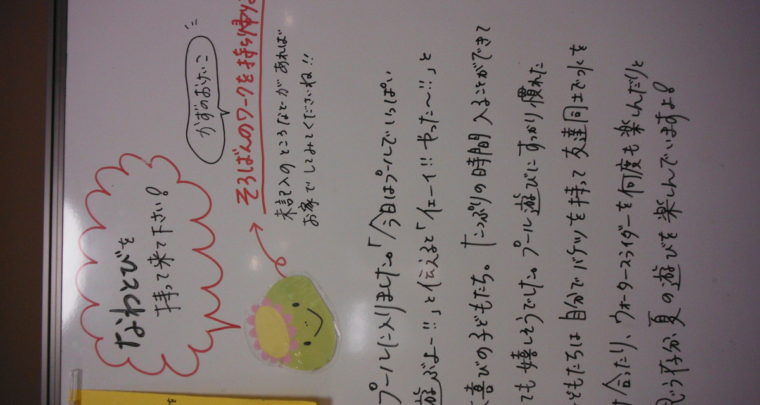 なわとびを
持って来て下さい!
かずのおけいこ
そろばんのワークを持ち帰り
未記入のところなどが あれば
お家でしてみてくださいね!!
プールに入りました。「今日はプールでいっぱい
遊ぶよー!!」と伝えると「イェーイ!! やった〜!!」と
喜びの子どもたち。たっぷりの時間 入ることができて
ても嬉しそうでした。プール遊びにすっかり慣れた
どもたちは 自分でバケツを持って 友達同士で水を
け合ったり、ウォータースライダーを何度も楽しんだりと
思う存分 夏の遊びを楽しんでいますよ!